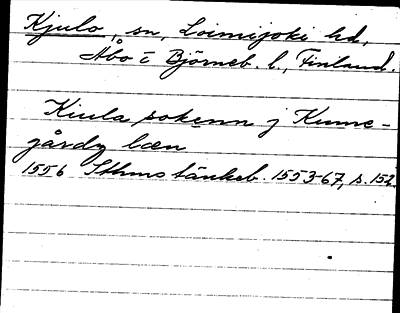 Kjulo, sn, Loimijoki hd,
Åbo o Björneb. l., Finland.
Kiula sokenn j Kume-
gårdz læn
1556 Sthms tänkeb. 1553-67, s. 152.